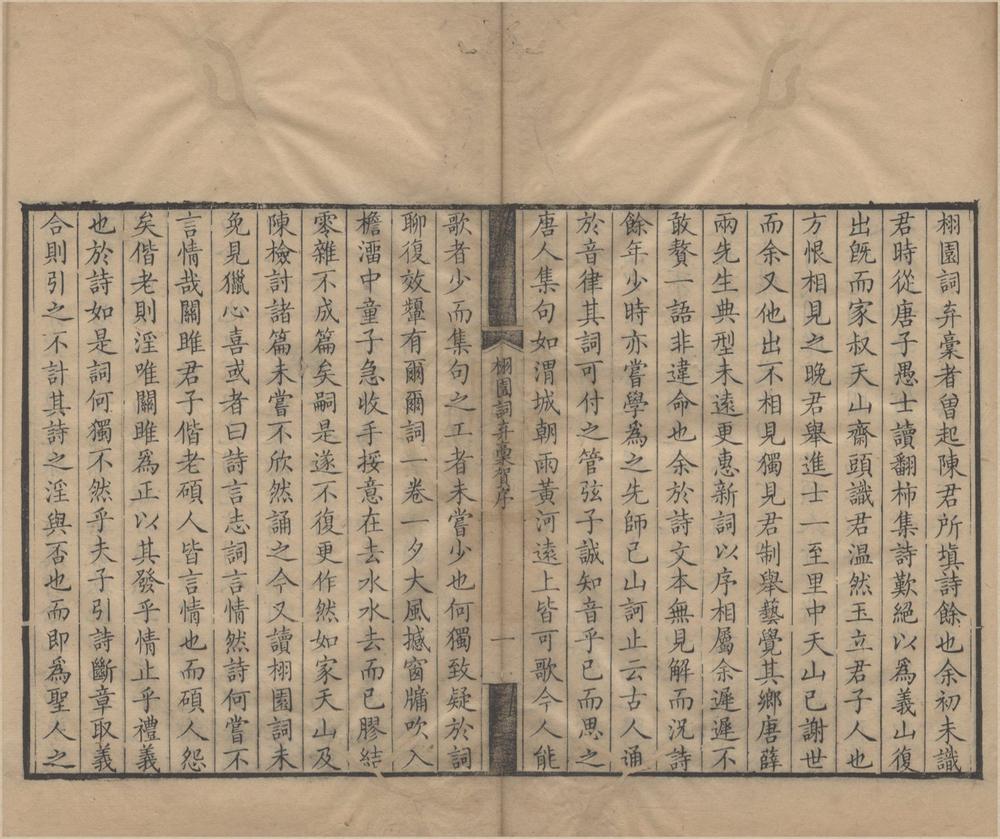 栩園詞弃稾者曾起陳君所塡詩餘也余初未識
君時從唐子愚士讀翻柿集詩歎絕以爲義山復
出旣而家叔天山齋頭識君温然玉立君子人也
方恨相見之晚君舉進士一至里中天山已謝世
而余又他出不相見獨見君制舉藝覺其鄉唐薛
兩先生典型未遠更惠新詞以序相屬余遲遲不
敢贅一語非違命也余於詩文本無見解而況詩
餘年少時亦嘗學爲之先師已山訶止云古人誦
於音律其詞可付之管弦子誠知音乎已而思之
唐人集句如渭城朝雨黃河遠上皆可歌今人能
栩園詞弃稾賀序
一
歌者少而集句之工者未嘗少也何獨致疑於詞
聊復效顰有爾爾詞一卷一夕大風撼窗牖吹入
檐澑中童子急收手挼意在去水水去而已膠結
零雜不成篇矣嗣是遂不復更作然如家天山及
陳檢討諸篇未嘗不欣然誦之今又讀栩園詞未
免見獵心喜或者曰詩言志詞言情然詩何嘗不
言情哉關雎君子偕老碩人皆言情也而碩人怨
矣偕老則淫唯關雎爲正以其發乎情止乎禮義
也於詩如是詞何獨不然乎夫子引詩斷章取義
合則引之不計其詩之淫與否也而即爲聖人之